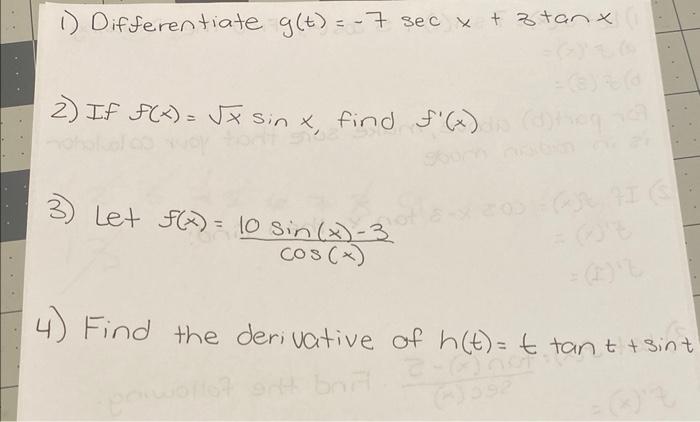 1) Differentiate g(t) = -7 sec x + 3 tan x
2) If f(x) = √x sin x, find f'(x)
3) Let f(x) = 10 sin(x)-3
cos(x)
4) Find the derivative of h(t)= t tan t + sin t